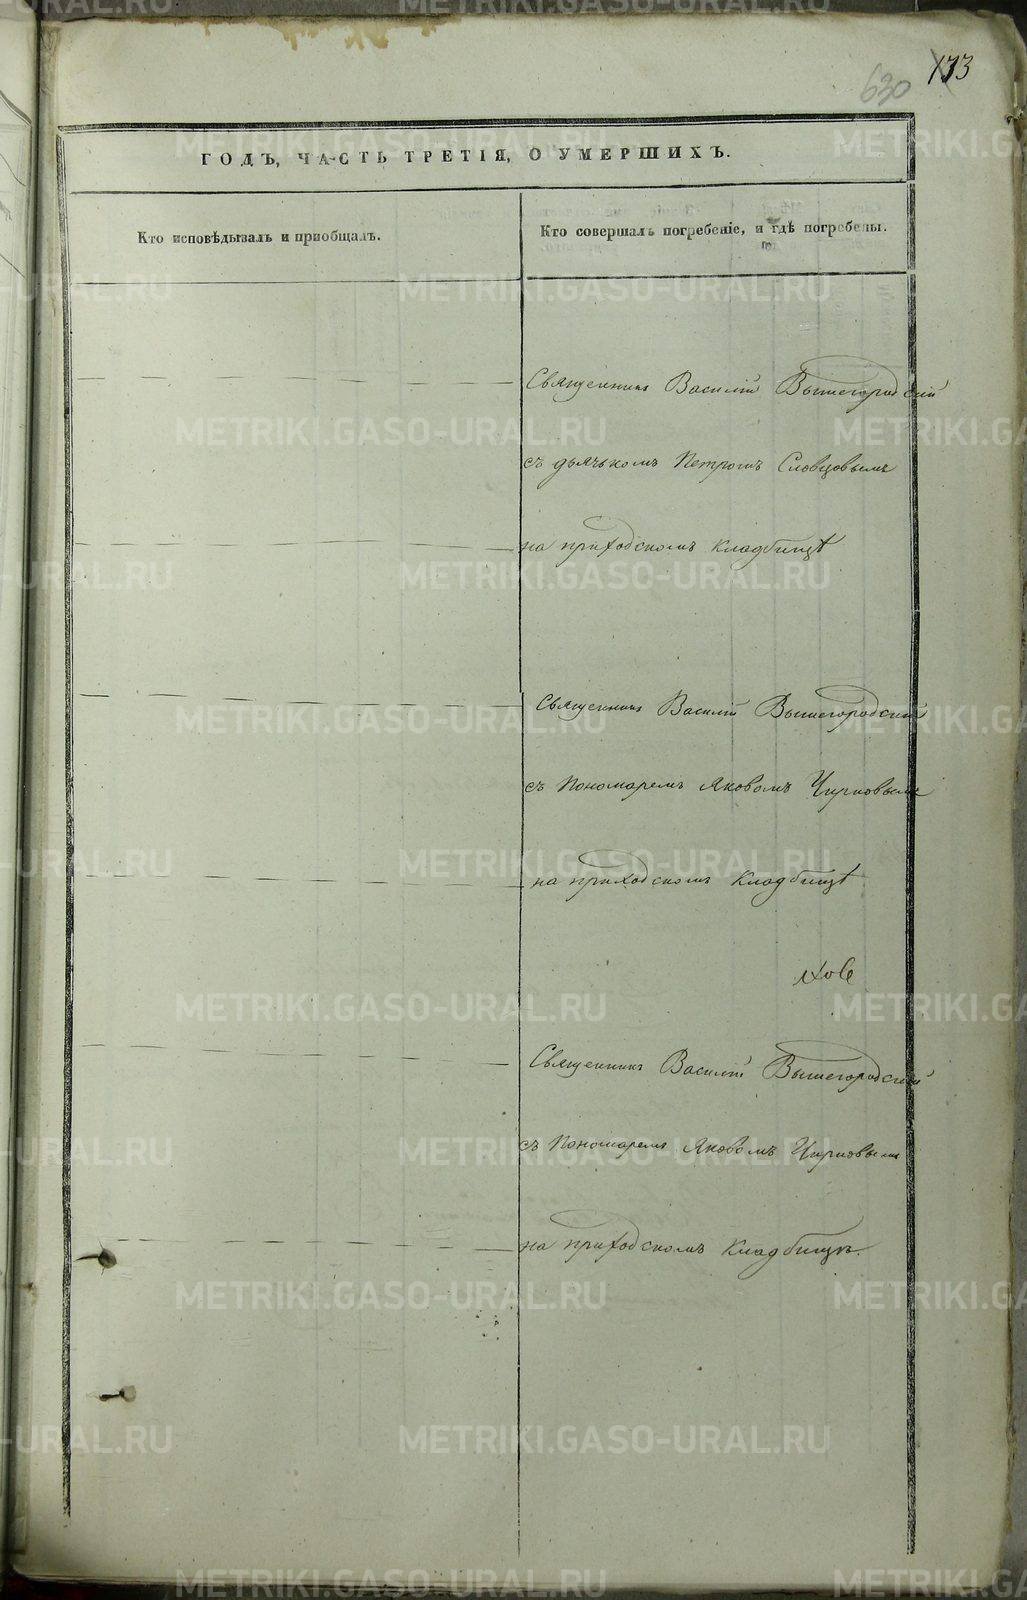 630 173
ГОДЪ, ЧАСТЬ ТРЕТІЯ, О УМЕРШИХЪ.
Кто исповѣдывалъ и пріобщалъ.
Кто совершалъ погребеніе, и гдѣ погребены.
Священникъ Василій Вышегородскій
съ дьячькомъ Петромъ Словцовымъ
на приходскомъ кладбищѣ
Священникъ Василій Вышегородский
съ Пономаремъ Яковомъ Чирковымъ
на приходскомъ кладбищѣ
Священникъ Василій Вышегородский
съ Пономаремъ Яковомъ Чирковымъ
на приходскомъ кладбищѣ.
METRIKI.GASO-URAL.RU